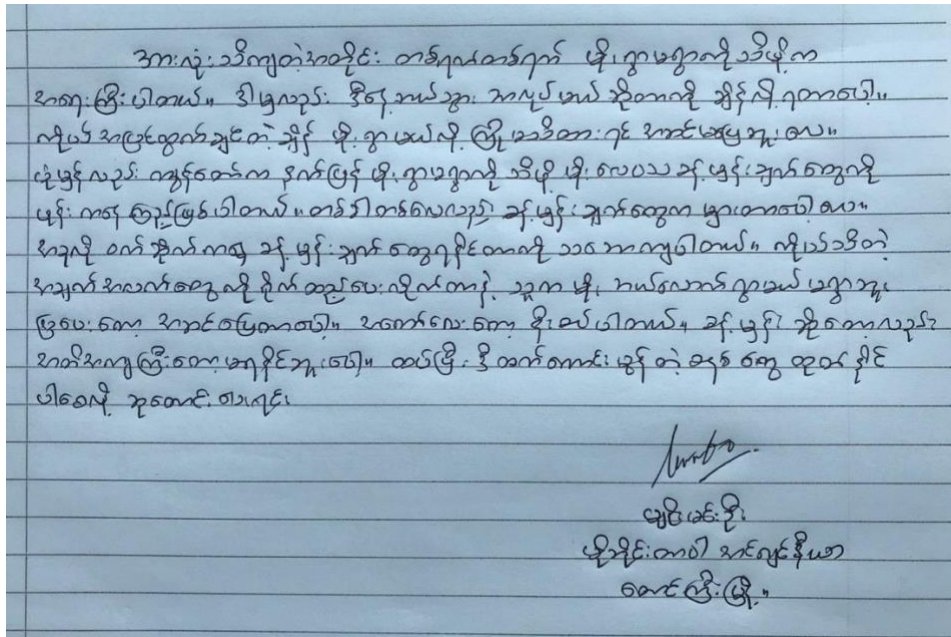 အားလုံးသိကျတဲ့အတိုင်း တစ်ရက်တစ်ရက် မိုးရွာမရွာကို သိဖို့က
အရေးကြီးပါတယ်။ ဒါမှလည်း ဒီနေ့ ဘယ်သွား ဘာလုပ်မယ် ဆိုတာကို ချိန်လို့ ရတာပေါ့။
ကိုယ် အပြင်ထွက်ချင်တဲ့ ချိန် မိုးရွာမယ်လို့ ကြိုမသိထားရင် အဆင်မပြေဘူးလေ။
ပုံမှန်လည်း ကျွန်တော်က နက်ဖြန် မိုးရွာမရွာကို သိဖို့ မိုးလေဝသ ခန့်မှန်းချက်တွေကို
ဖုန်းကနေ ကြည့်ဖြစ်ပါတယ်။ တစ်ခါတစ်လေလည်း ခန့်မှန်းချက်တွေက မှားတာပေါ့လေ။
အခုလို ဝက်ဆိုက်ကနေ ခန့်မှန်းချက်တွေရနိုင်တာကို သဘောကျပါတယ်။ ကိုယ်သိတဲ့
အချက်အလက်တွေကို ရိုက်ထည့်ပေးလိုက်တာနဲ့ သူက မိုးဘယ်လောက်ရွာမယ် မရွာဘူး
ပြပေးတော့ အဆင်ပြေတာပေါ့။ အတော်လေးတော့ စိုးစပ်ပါတယ်။ ခန့်မှန်း ဆိုတော့လည်း
အတိအကျကြီးတော့ မရနိုင်ဘူးပေါ့။ ထပ်ပြီး ဒီ့ထက်ကောင်းမွန်တဲ့ စနစ်တွေ ထုတ်နိုင်
ပါစေလို့ ဆုတောင်းပေးရင်း
မျိုးမင်းဦး
မိုဘိုင်းတာဝါ အင်ဂျင်နီယာ
တောင်ကြီးမြို့။